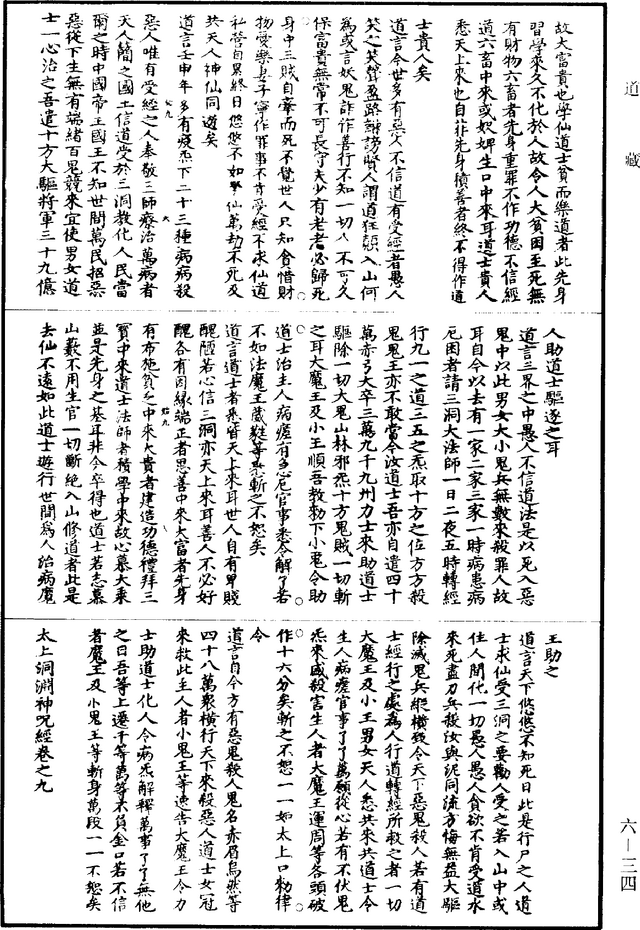 道藏
故大富貴也學仙道士貧而樂道者此先身
習學來久不化於人故令人大貧困至死無
有財物六畜者先身重罪不作功德不信經
道六畜中來或奴婢生口中來耳道士貴人
悉天上來也自非先身積善者終不得作道
士貴人矣
道言今世多有惡人不信道有受經者愚人
笑之笑聲盈路誹謗嘴人謂道狂顛入山何
為或言妖鬼詐作善行不知一切人不可久
保富貴無常不可長守夫少有老老必歸死
身中三賊自索而死不覺世人只知貪惜財
物愛樂妻子寧作罪事不肯受經不求仙道
私營自累終日悠悠不如學仙萬劫不死及
共天人神仙同遊矣
道言壬申年多有疫炁下二十三種病病殺
惡人唯有受經之人奉敬三師療治萬病者
天人簡之國土信道受於三洞教化人民當
爾之時中國帝王國主不知世間萬民招惡
惡從下生無有端緒百鬼競來宜使男女道
士一心治之吾遣十方大驅將軍三十九億
人助道士驅逐之耳
道言三界之中愚人不信道法是以死入惡
鬼中以此男女大小鬼兵無數來殺罪人故
耳自今以去有一家二家三家一時病患病
厄困者請三洞大法師一日二夜五時轉經
行九一之道三五之炁取十方之位方方殺
鬼鬼王亦不敢當令汝道士吾亦自遣四十
萬赤弓大卒三萬九千九州力士來助道士
驅除一切大鬼山林邪炁十方鬼賊一切斬
之耳大魔王及小王順吾教勑下小鬼令助
道士治主人病瘥有急厄官事悉令解了若
不如法魔王蔵鞋等悉斬之不恕矣
道言道士者悉皆天上來耳世人自有卑賤
醜陋若心信三洞亦天上來耳善人不必好
醜各有因緣端正者思善中來大富者先身
有布施貧乏中來大貴者建造功德禮拜三
寶中來道士法師者積學中來故心慕大乘
並是先身之基耳非今卒得也道士若志慕
山藪不用生官一切斷絕入山修道者此是
去仙不遠如此道士遊行世間為人治病魔
王助之
道言天下悠悠不知死日此是行尸之人道
士求仙受三洞之要勸人受之若入山中或
住人間代一切愚人愚人貪欲不肯受道水
來死盡刀兵殺汝與泥同流方悔無益大驅
除滅鬼兵縱橫殺令天下惡鬼殺人若有道
士經行之處為人行道轉經所救之者一切
大魔王及小王男女天人悉共來共道士令
生人病瘥官事了了萬願從心若有不伏鬼
炁來威殺害生人者大魔王運周等各頭破
作十六分矣斬之不恕一一如太上口勑律
令
道言自今方有惡鬼殺人鬼名赤眉烏然等
四十八萬衆橫行天下來殺惡人道士女冠
來救此主人者小鬼王等速告大魔王令力
士助道士化人令病炁解釋萬事了了無他
之曰吾等上遷千等萬等不負金口若不信
者魔王及小鬼王等斬身萬段一一不恕矣
太上洞淵神呪經卷之九
六—三四